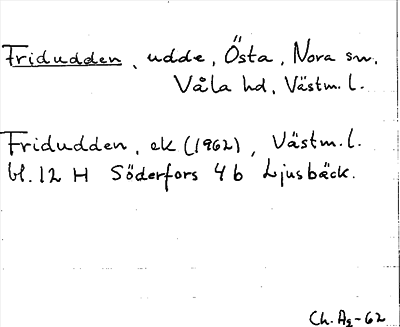 Fridudden, udde, Östa, Nora sn,
Våla hd, Västm. l.
Fridudden, ek (1962), Västm. l.
bl. 12 H Söderfors 4 b Ljusbäck.
Ch. Ag-62